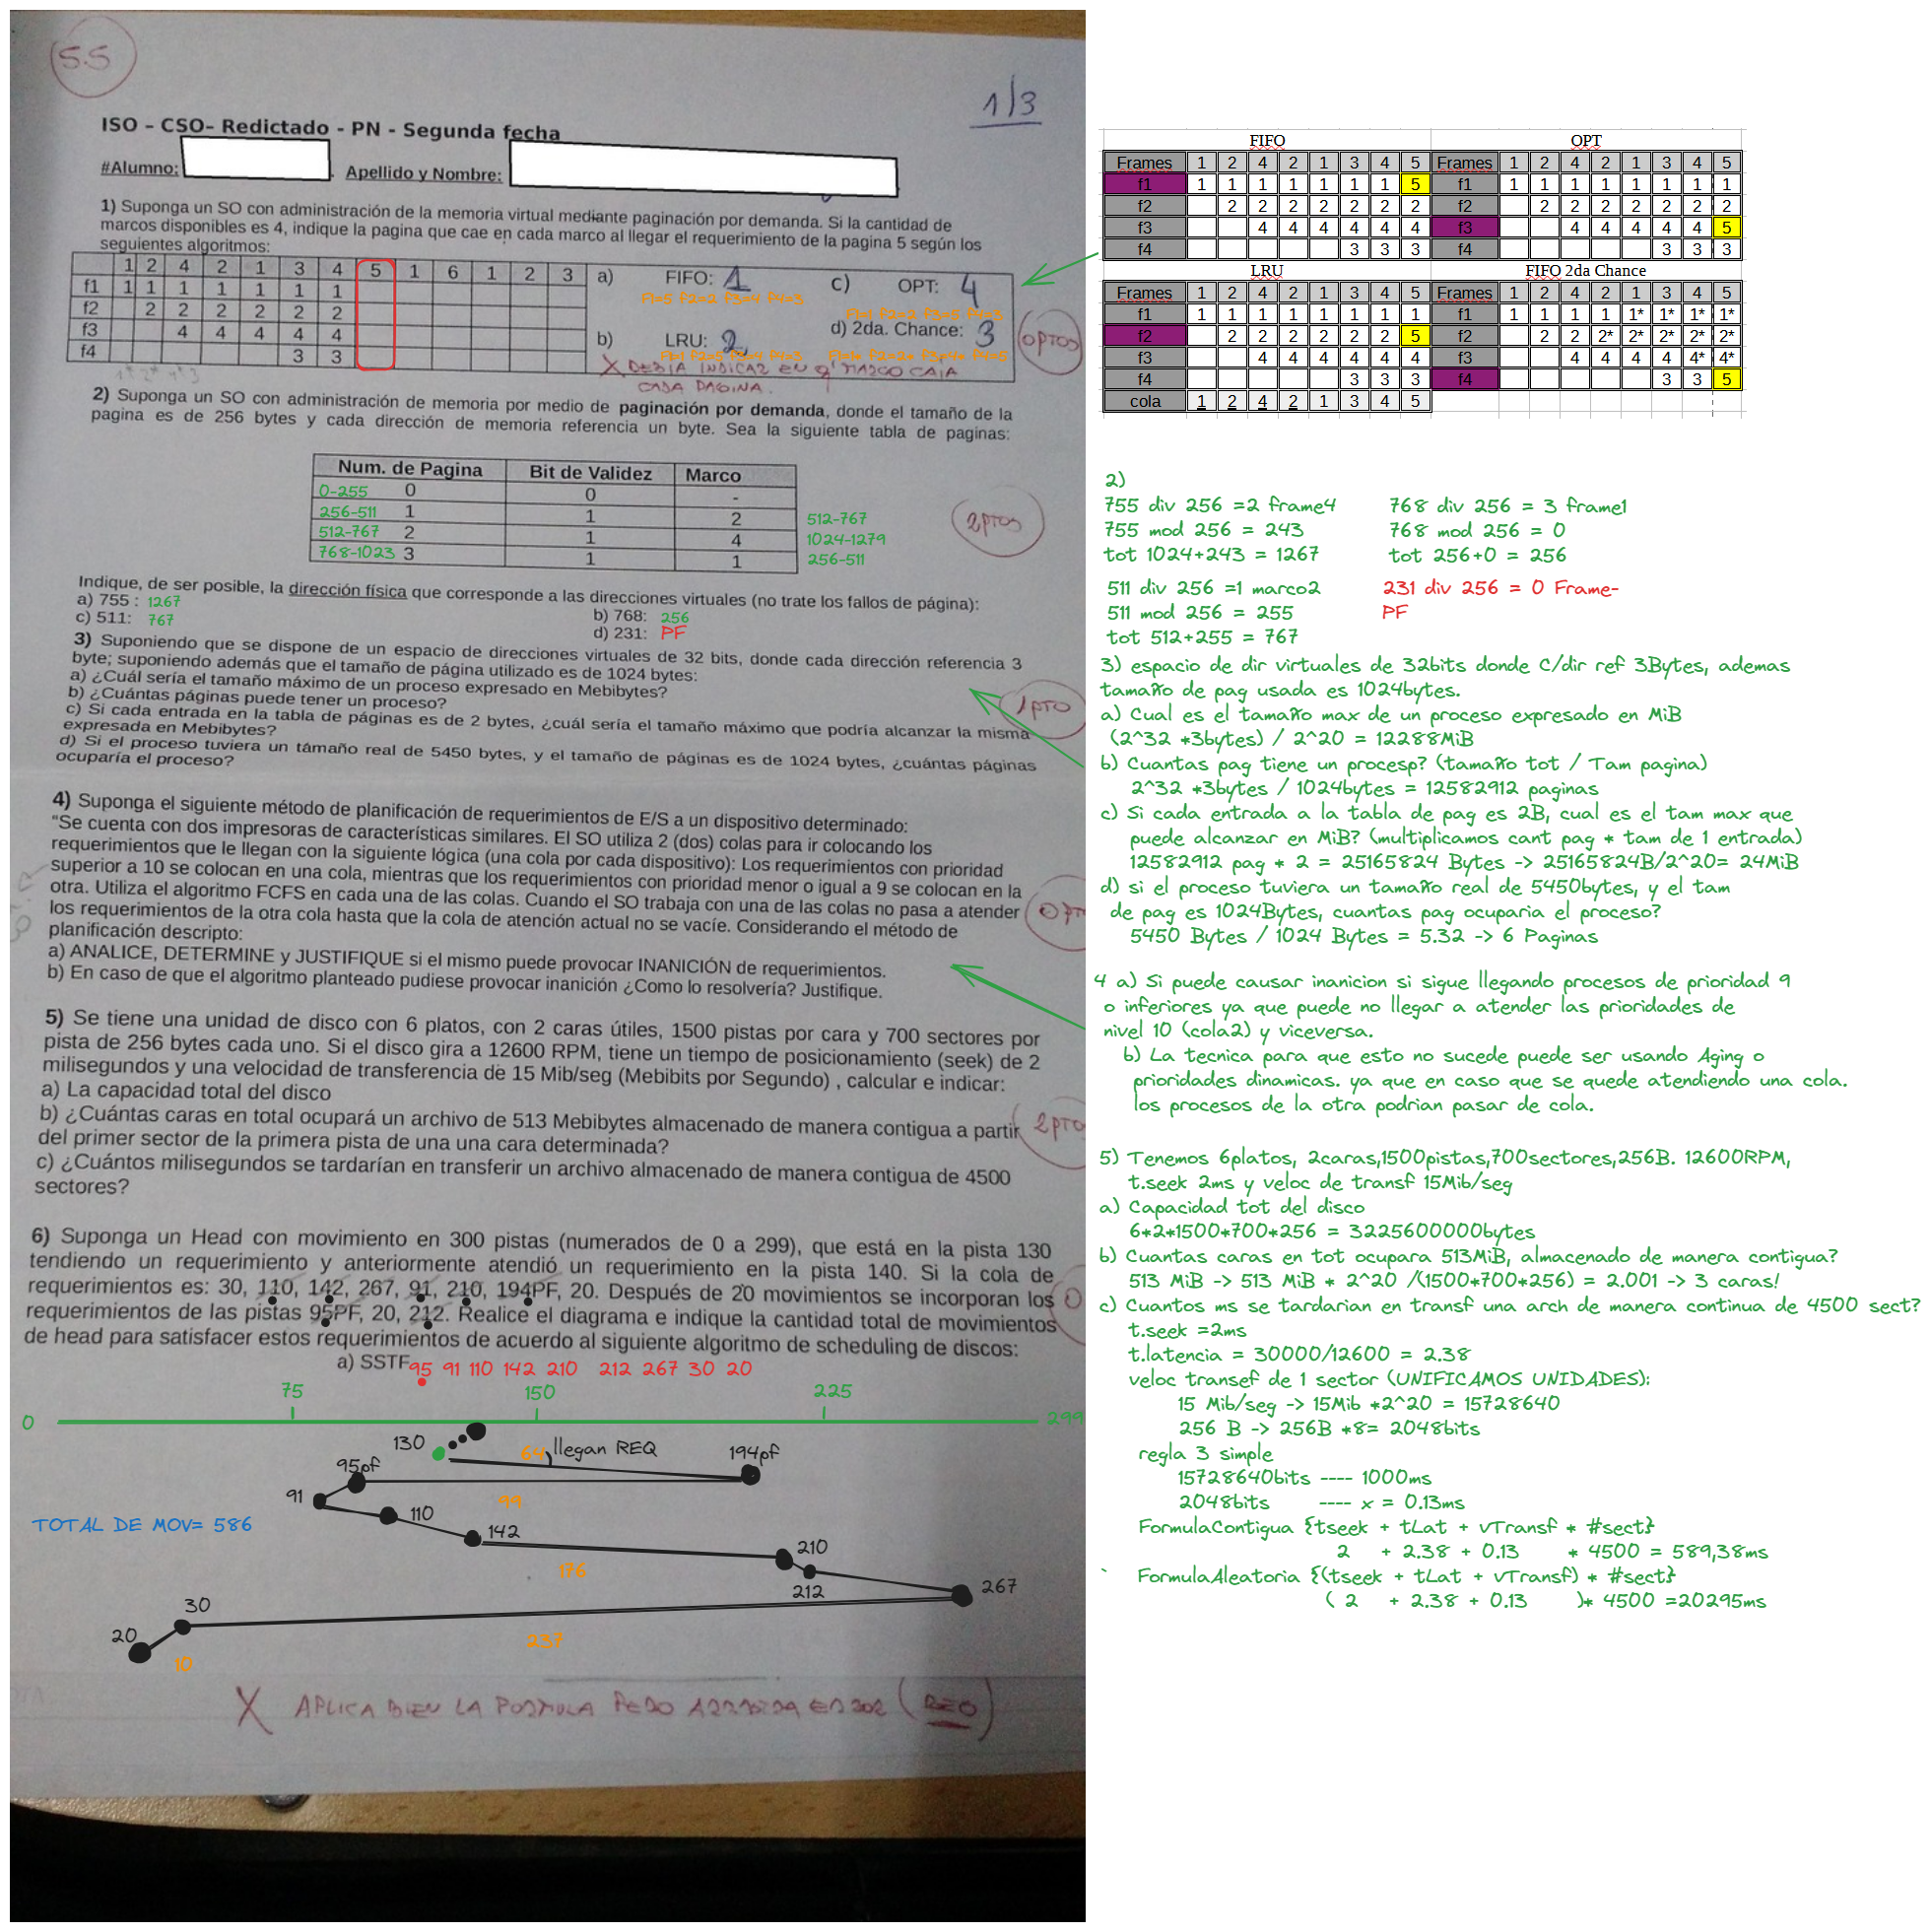 5.5
1/3
ISO – CSO– Redictado - PN - Segunda fecha
#Alumno: Apellido y Nombre:
1) Suponga un SO con administración de la memoria virtual mediante paginación por demanda. Si la cantidad de
marcos disponibles es 4, indique la pagina que cae en cada marco al llegar el requerimiento de la pagina 5 según los
seguientes algoritmos:
1 2 4 2 1 3 4 5 1 6 1 2 3
f1 1 1 1 1 1 1 1
f2 2 2 2 2 2 2
f3 4 4 4 4 4
f4 3 3
a) FIFO: 1
F1=5 F2=2 F3=4 F4=3
c) OPT: 4
F1=1 F2=2 F3=5 F4=3
b) LRU: 2
F1=1 F2=5 F3=4 F4=3
d) 2da. Chance: 3
F1=1* F2=2* F3=4* F4=5
0PTOS
X DEBIA INDICAR EN Q' MARCO CAIA
CADA PAGINA.
2) Suponga un SO con administración de memoria por medio de paginación por demanda, donde el tamaño de la
pagina es de 256 bytes y cada dirección de memoria referencia un byte. Sea la siguiente tabla de paginas:
Num. de Pagina Bit de Validez Marco
0-255 0 0 -
256-511 1 1 2 512-767
512-767 2 1 4 1024-1279
768-1023 3 1 1 256-511
2PTOS
Indique, de ser posible, la dirección física que corresponde a las direcciones virtuales (no trate los fallos de página):
a) 755 : 1267
b) 768: 256
c) 511: 767
d) 231: PF
3) Suponiendo que se dispone de un espacio de direcciones virtuales de 32 bits, donde cada dirección referencia 3
byte; suponiendo además que el tamaño de página utilizado es de 1024 bytes:
a) ¿Cuál sería el tamaño máximo de un proceso expresado en Mebibytes?
b) ¿Cuántas páginas puede tener un proceso?
c) Si cada entrada en la tabla de páginas es de 2 bytes, ¿cuál sería el tamaño máximo que podría alcanzar la misma
expresada en Mebibytes?
d) Si el proceso tuviera un támaño real de 5450 bytes, y el tamaño de páginas es de 1024 bytes, ¿cuántas páginas
ocuparía el proceso?
1PTO
4) Suponga el siguiente método de planificación de requerimientos de E/S a un dispositivo determinado:
"Se cuenta con dos impresoras de características similares. El SO utiliza 2 (dos) colas para ir colocando los
requerimientos que le llegan con la siguiente lógica (una cola por cada dispositivo): Los requerimientos con prioridad
superior a 10 se colocan en una cola, mientras que los requerimientos con prioridad menor o igual a 9 se colocan en la
otra. Utiliza el algoritmo FCFS en cada una de las colas. Cuando el SO trabaja con una de las colas no pasa a atender
los requerimientos de la otra cola hasta que la cola de atención actual no se vacíe. Considerando el método de
planificación descripto:
a) ANALICE, DETERMINE y JUSTIFIQUE si el mismo puede provocar INANICIÓN de requerimientos.
b) En caso de que el algoritmo planteado pudiese provocar inanición ¿Como lo resolvería? Justifique.
0PT
5) Se tiene una unidad de disco con 6 platos, con 2 caras útiles, 1500 pistas por cara y 700 sectores por
pista de 256 bytes cada uno. Si el disco gira a 12600 RPM, tiene un tiempo de posicionamiento (seek) de 2
milisegundos y una velocidad de transferencia de 15 Mib/seg (Mebibits por Segundo) , calcular e indicar:
a) La capacidad total del disco
b) ¿Cuántas caras en total ocupará un archivo de 513 Mebibytes almacenado de manera contigua a partir
del primer sector de la primera pista de una una cara determinada?
c) ¿Cuántos milisegundos se tardarían en transferir un archivo almacenado de manera contigua de 4500
sectores?
2PTO
6) Suponga un Head con movimiento en 300 pistas (numerados de 0 a 299), que está en la pista 130
tendiendo un requerimiento y anteriormente atendió un requerimiento en la pista 140. Si la cola de
requerimientos es: 30, 110, 142, 267, 91, 210, 194PF, 20. Después de 20 movimientos se incorporan los
requerimientos de las pistas 95PF, 20, 212. Realice el diagrama e indique la cantidad total de movimientos
de head para satisfacer estos requerimientos de acuerdo al siguiente algoritmo de scheduling de discos:
0
a) SSTF
95 91 110 142 210 212 267 30 20
75 150 225
0 299
130 64 llegan REQ 194pf
95pf
99
91 110
142
TOTAL DE MOV= 586
210
176
212 267
30
237
20
10
X APLICA BIEN LA FORMULA PERO ARRASTRA ERROR (REQ)
FIFO
Frames 1 2 4 2 1 3 4 5
f1 1 1 1 1 1 1 1 5
f2 2 2 2 2 2 2 2
f3 4 4 4 4 4 4
f4 3 3 3
OPT
Frames 1 2 4 2 1 3 4 5
f1 1 1 1 1 1 1 1 1
f2 2 2 2 2 2 2 2
f3 4 4 4 4 4 5
f4 3 3 3
LRU
Frames 1 2 4 2 1 3 4 5
f1 1 1 1 1 1 1 1 1
f2 2 2 2 2 2 2 5
f3 4 4 4 4 4 4
f4 3 3 3
cola 1 2 4 2 1 3 4 5
FIFO 2da Chance
Frames 1 2 4 2 1 3 4 5
f1 1 1 1 1 1* 1* 1* 1*
f2 2 2 2* 2* 2* 2* 2*
f3 4 4 4 4 4* 4*
f4 3 3 5
2)
755 div 256 =2 frame4
755 mod 256 = 243
tot 1024+243 = 1267
768 div 256 = 3 frame1
768 mod 256 = 0
tot 256+0 = 256
511 div 256 =1 marco2
511 mod 256 = 255
tot 512+255 = 767
231 div 256 = 0 Frame-
PF
3) espacio de dir virtuales de 32bits donde C/dir ref 3Bytes, ademas
tamaño de pag usada es 1024bytes.
a) Cual es el tamaño max de un proceso expresado en MiB
(2^32 *3bytes) / 2^20 = 12288MiB
b) Cuantas pag tiene un procesp? (tamaño tot / Tam pagina)
2^32 *3bytes / 1024bytes = 12582912 paginas
c) Si cada entrada a la tabla de pag es 2B, cual es el tam max que
puede alcanzar en MiB? (multiplicamos cant pag * tam de 1 entrada)
12582912 pag * 2 = 25165824 Bytes -> 25165824B/2^20= 24MiB
d) si el proceso tuviera un tamaño real de 5450bytes, y el tam
de pag es 1024Bytes, cuantas pag ocuparia el proceso?
5450 Bytes / 1024 Bytes = 5.32 -> 6 Paginas
4 a) Si puede causar inanicion si sigue llegando procesos de prioridad 9
o inferiores ya que puede no llegar a atender las prioridades de
nivel 10 (cola2) y viceversa.
b) La tecnica para que esto no sucede puede ser usando Aging o
prioridades dinamicas. ya que en caso que se quede atendiendo una cola.
los procesos de la otra podrian pasar de cola.
5) Tenemos 6platos, 2caras,1500pistas,700sectores,256B. 12600RPM,
t.seek 2ms y veloc de transf 15Mib/seg
a) Capacidad tot del disco
6*2*1500*700*256 = 3225600000bytes
b) Cuantas caras en tot ocupara 513MiB, almacenado de manera contigua?
513 MiB -> 513 MiB * 2^20 /(1500*700*256) = 2.001 -> 3 caras!
c) Cuantos ms se tardarian en transf una arch de manera continua de 4500 sect?
t.seek =2ms
t.latencia = 30000/12600 = 2.38
veloc transef de 1 sector (UNIFICAMOS UNIDADES):
15 Mib/seg -> 15Mib *2^20 = 15728640
256 B -> 256B *8= 2048bits
regla 3 simple
15728640bits ---- 1000ms
2048bits ---- x = 0.13ms
FormulaContigua {tseek + tLat + vTransf * #sect}
2 + 2.38 + 0.13 * 4500 = 589,38ms
FormulaAleatoria {(tseek + tLat + vTransf) * #sect}
( 2 + 2.38 + 0.13 )* 4500 =20295ms